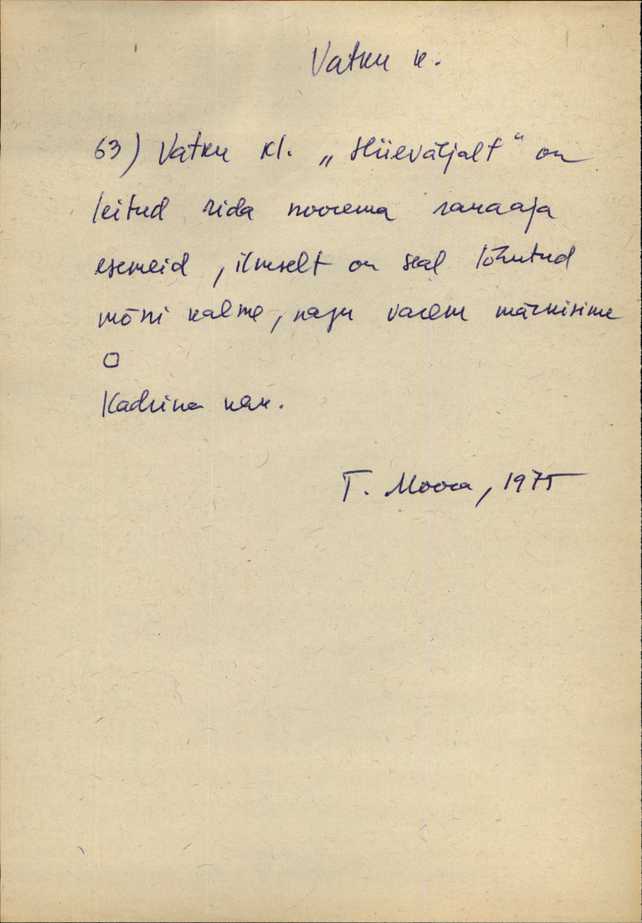 Vatku k.
63) Vatku kl. „Hiieväljalt“ on
leitud rida noorema rauaaja
esemeid, ilmselt on seal lõhutud
mõni kalme, nagu varem märkisime
Kadrina nak.
T. Moora, 1975